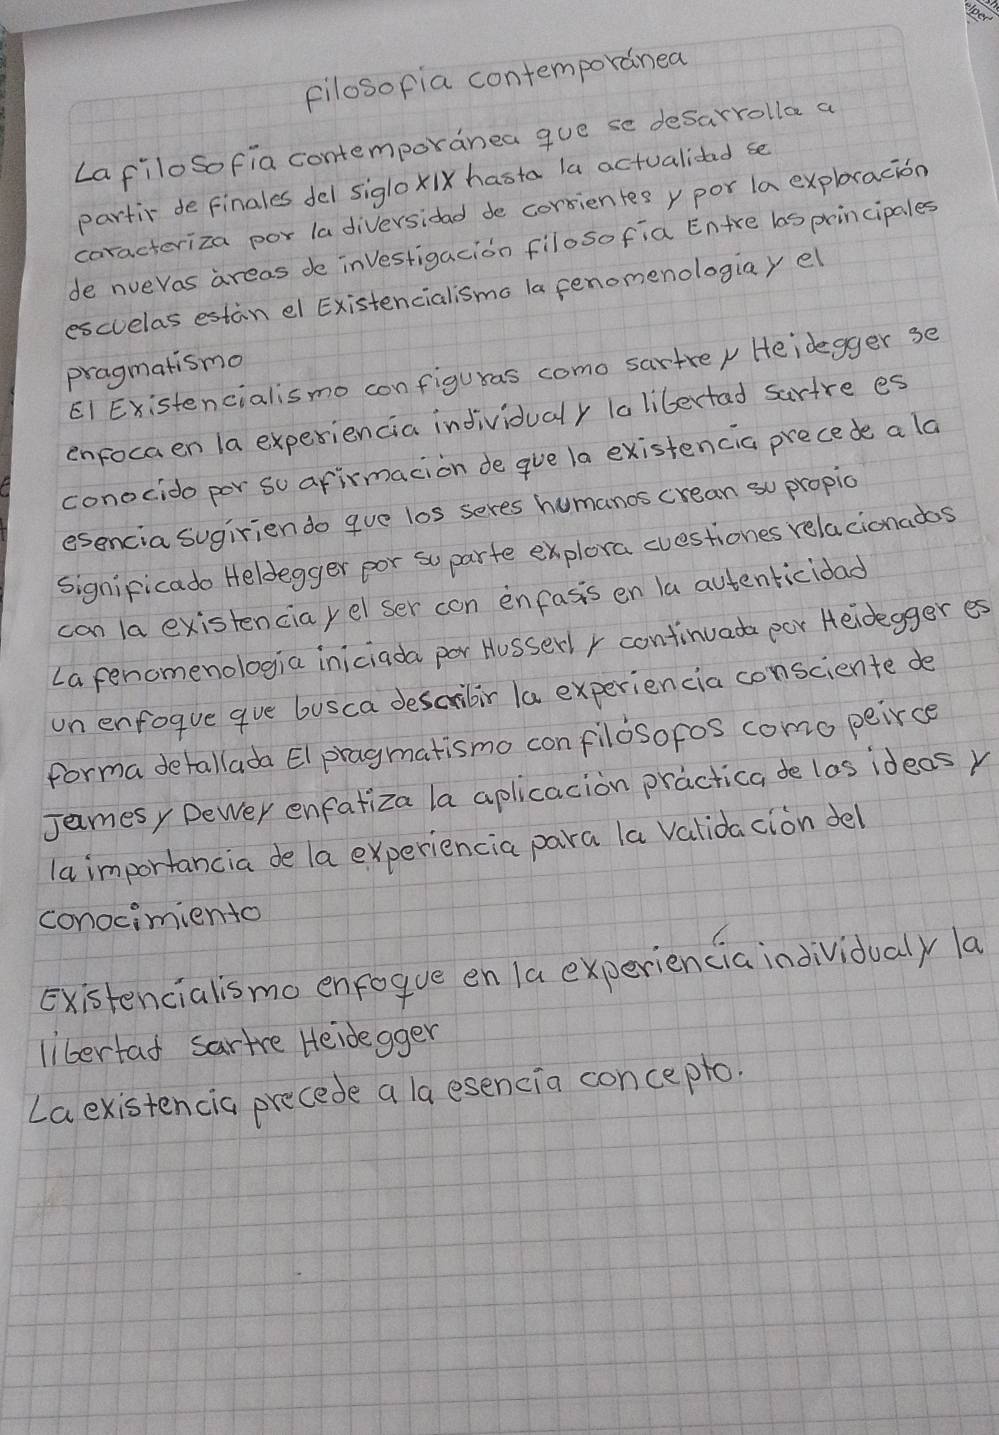 elper
filosofia contemporánea
La filosofía contemporánea que se desarrolla a
partir de finales del siglo XIX hasta la actualidad se
caracteriza por la diversidad de corrientes y por la exploración
de nuevas àreas de investigación filosofía Entre las principales
escuelas estàn el Existencialismo la fenomenologia y el
pragmatismo
El Existencialismo con figuras como sartre y Heidegger se
enfoca en la experiencia individual y la libertad Sartre es
conocido por su afirmaciòn de que la existencia precede a la
esencia sugiriendo que los seres humanos crean su propio
significado Heldegger por su parte explora cuestiones relacionados
con la existencia y el ser con ènfasis en la autenticidad
La fenomenologia iniciada por Husserl y continuada por Heidegger es
un enfoque que busca describir la experiencia consciente de
forma detallada El pragmatismo con filòsofos como peirce
James y Dewey enfatiza la aplicaciòn pràctica de las ideas y
la importancia de la experiencia para la validaciòn del
conocimiento
Existencialismo enfoque en la experiencia individual y la
libertad sartre Heidegger
La existencia precede a la esencia concepto.